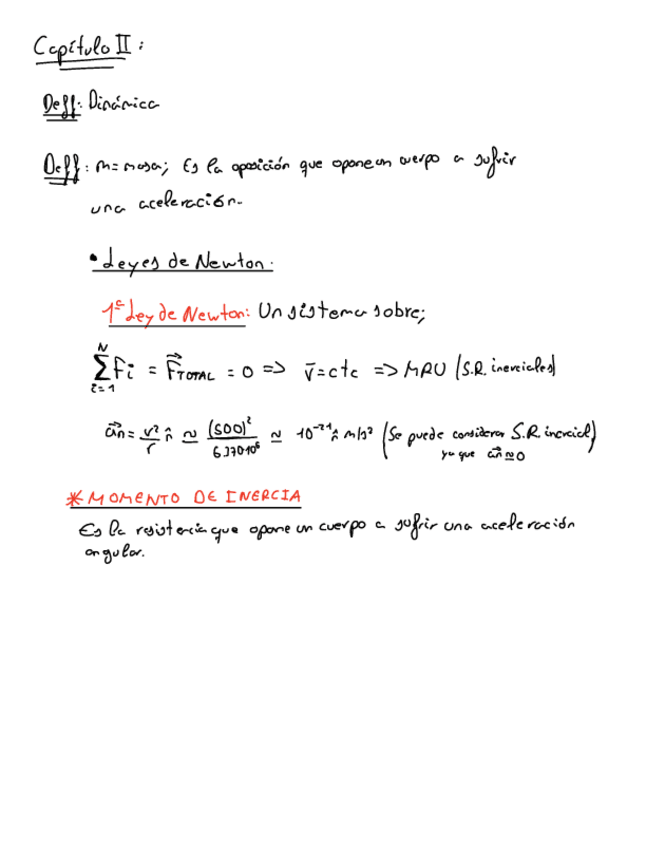 Capítulo II:
Deff: Dinámica
Deff: m = masa; Es la oposición que opone un cuerpo a sufrir
una aceleración.
• Leyes de Newton:
1ª Ley de Newton: Un sistema sobre;
N
∑ Fi = F⃗TOTAL = 0 => v̄ = cte => MRU (S.R. inerciales)
i=1
a⃗n = v²/r n̂ ≃ (500)²/6.370·10⁶ ≃ 10⁻²¹ n̂ m/s² (Se puede considerar S.R. inercial)
ya que a⃗n ≃ 0
* MOMENTO DE INERCIA
Es la resistencia que opone un cuerpo a sufrir una aceleración
angular.